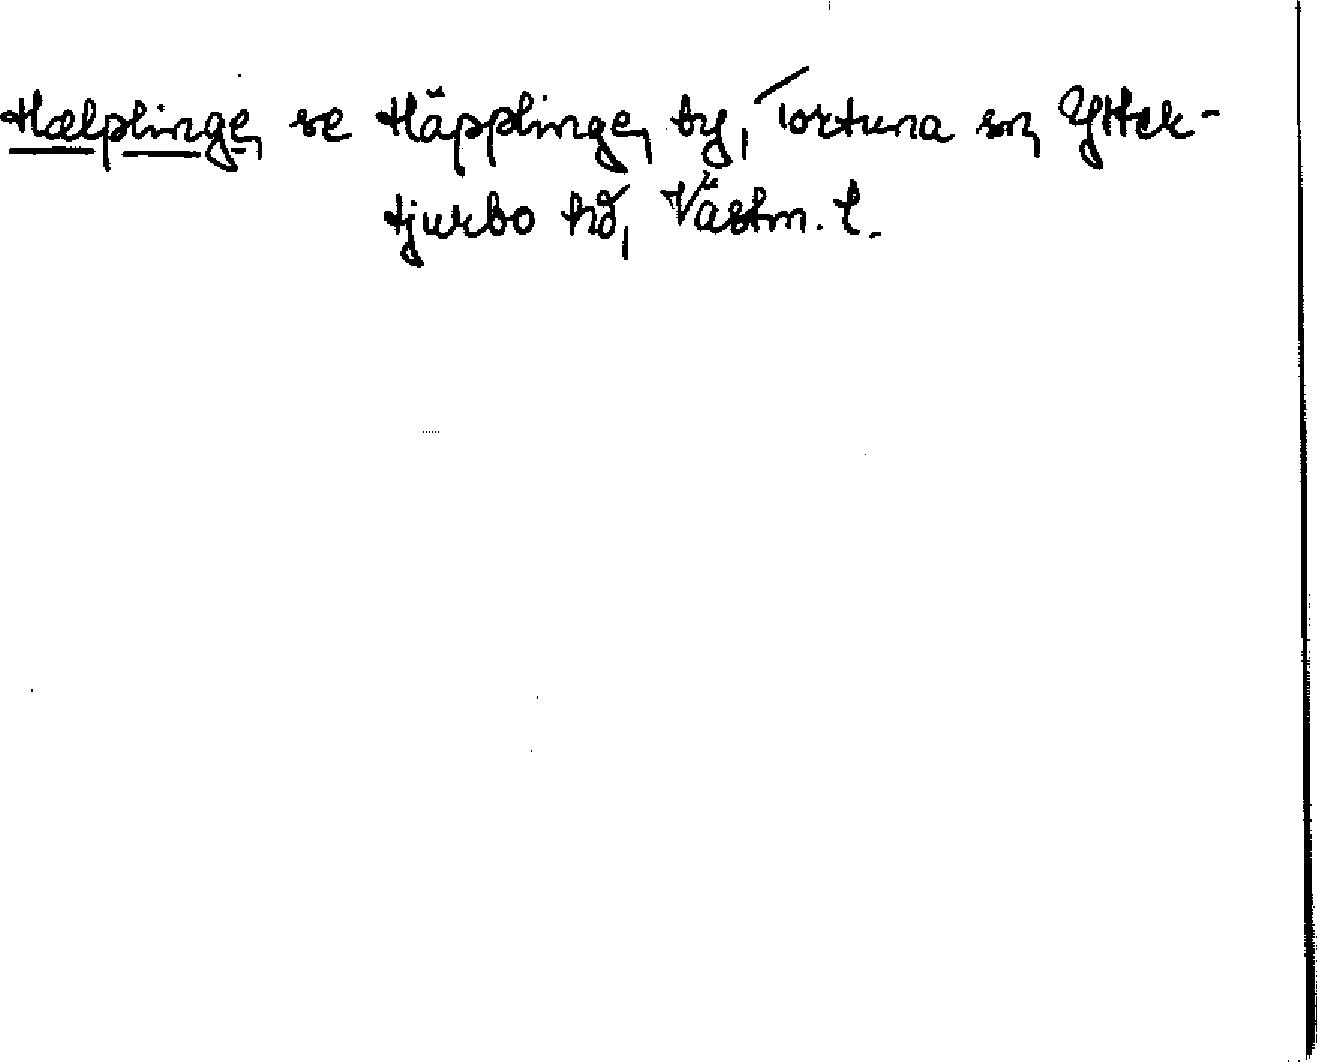 Hælplinge, se Häpplinge, by, Tortuna sn, Ytter-
tjurbo hd, Västm. l.